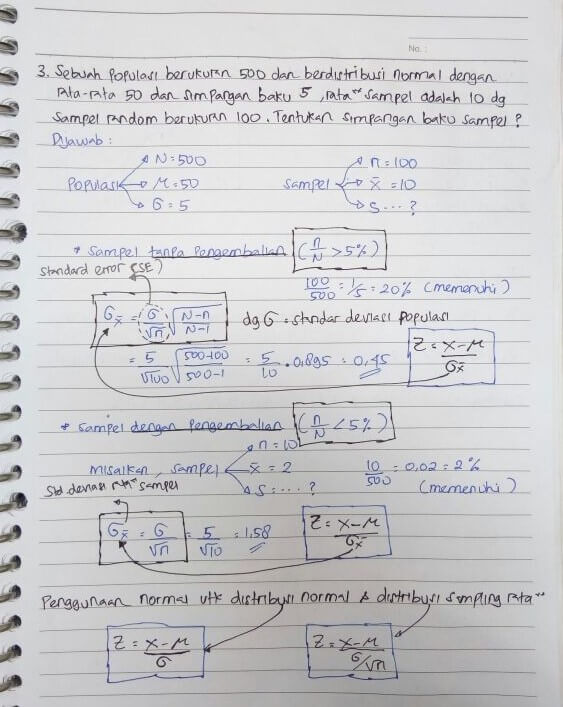 No.:
3. Sebuah Populasi berukuran 500 dan berdistribusi normal dengan
rata-rata 50 dan simpangan baku 5, rata" sampel adalah 10 dg
sampel random berukuran 100. Tentukan simpangan baku sampel ?
Dijawab :
Populasi → N = 500 → μ = 50 → σ = 5
sampel → n = 100 → x̄ = 10 → s ... ?
* sampel tanpa Pengembalian (n/N > 5%)
standard error (SE)
100/500 = 1/5 = 20% (memenuhi)
σx̄ = σ/√n √(N-n/N-1) dg σ = standar deviasi populasi
= 5/√100 √(500-100/500-1) = 5/10 . 0,895 = 0,45
Z = x-μ/σx̄
* sampel dengan Pengembalian (n/N < 5%)
misalkan, sampel → n = 10 → x̄ = 2 → s = ... ?
10/500 = 0,02 = 2% (memenuhi)
std deviasi rt" sampel
σx̄ = σ/√n = 5/√10 = 1,58
Z = x-μ/σx̄
Penggunaan normal utk distribusi normal & distribusi sampling rata"
Z = x-μ/σ
Z = x-μ/σ/√n